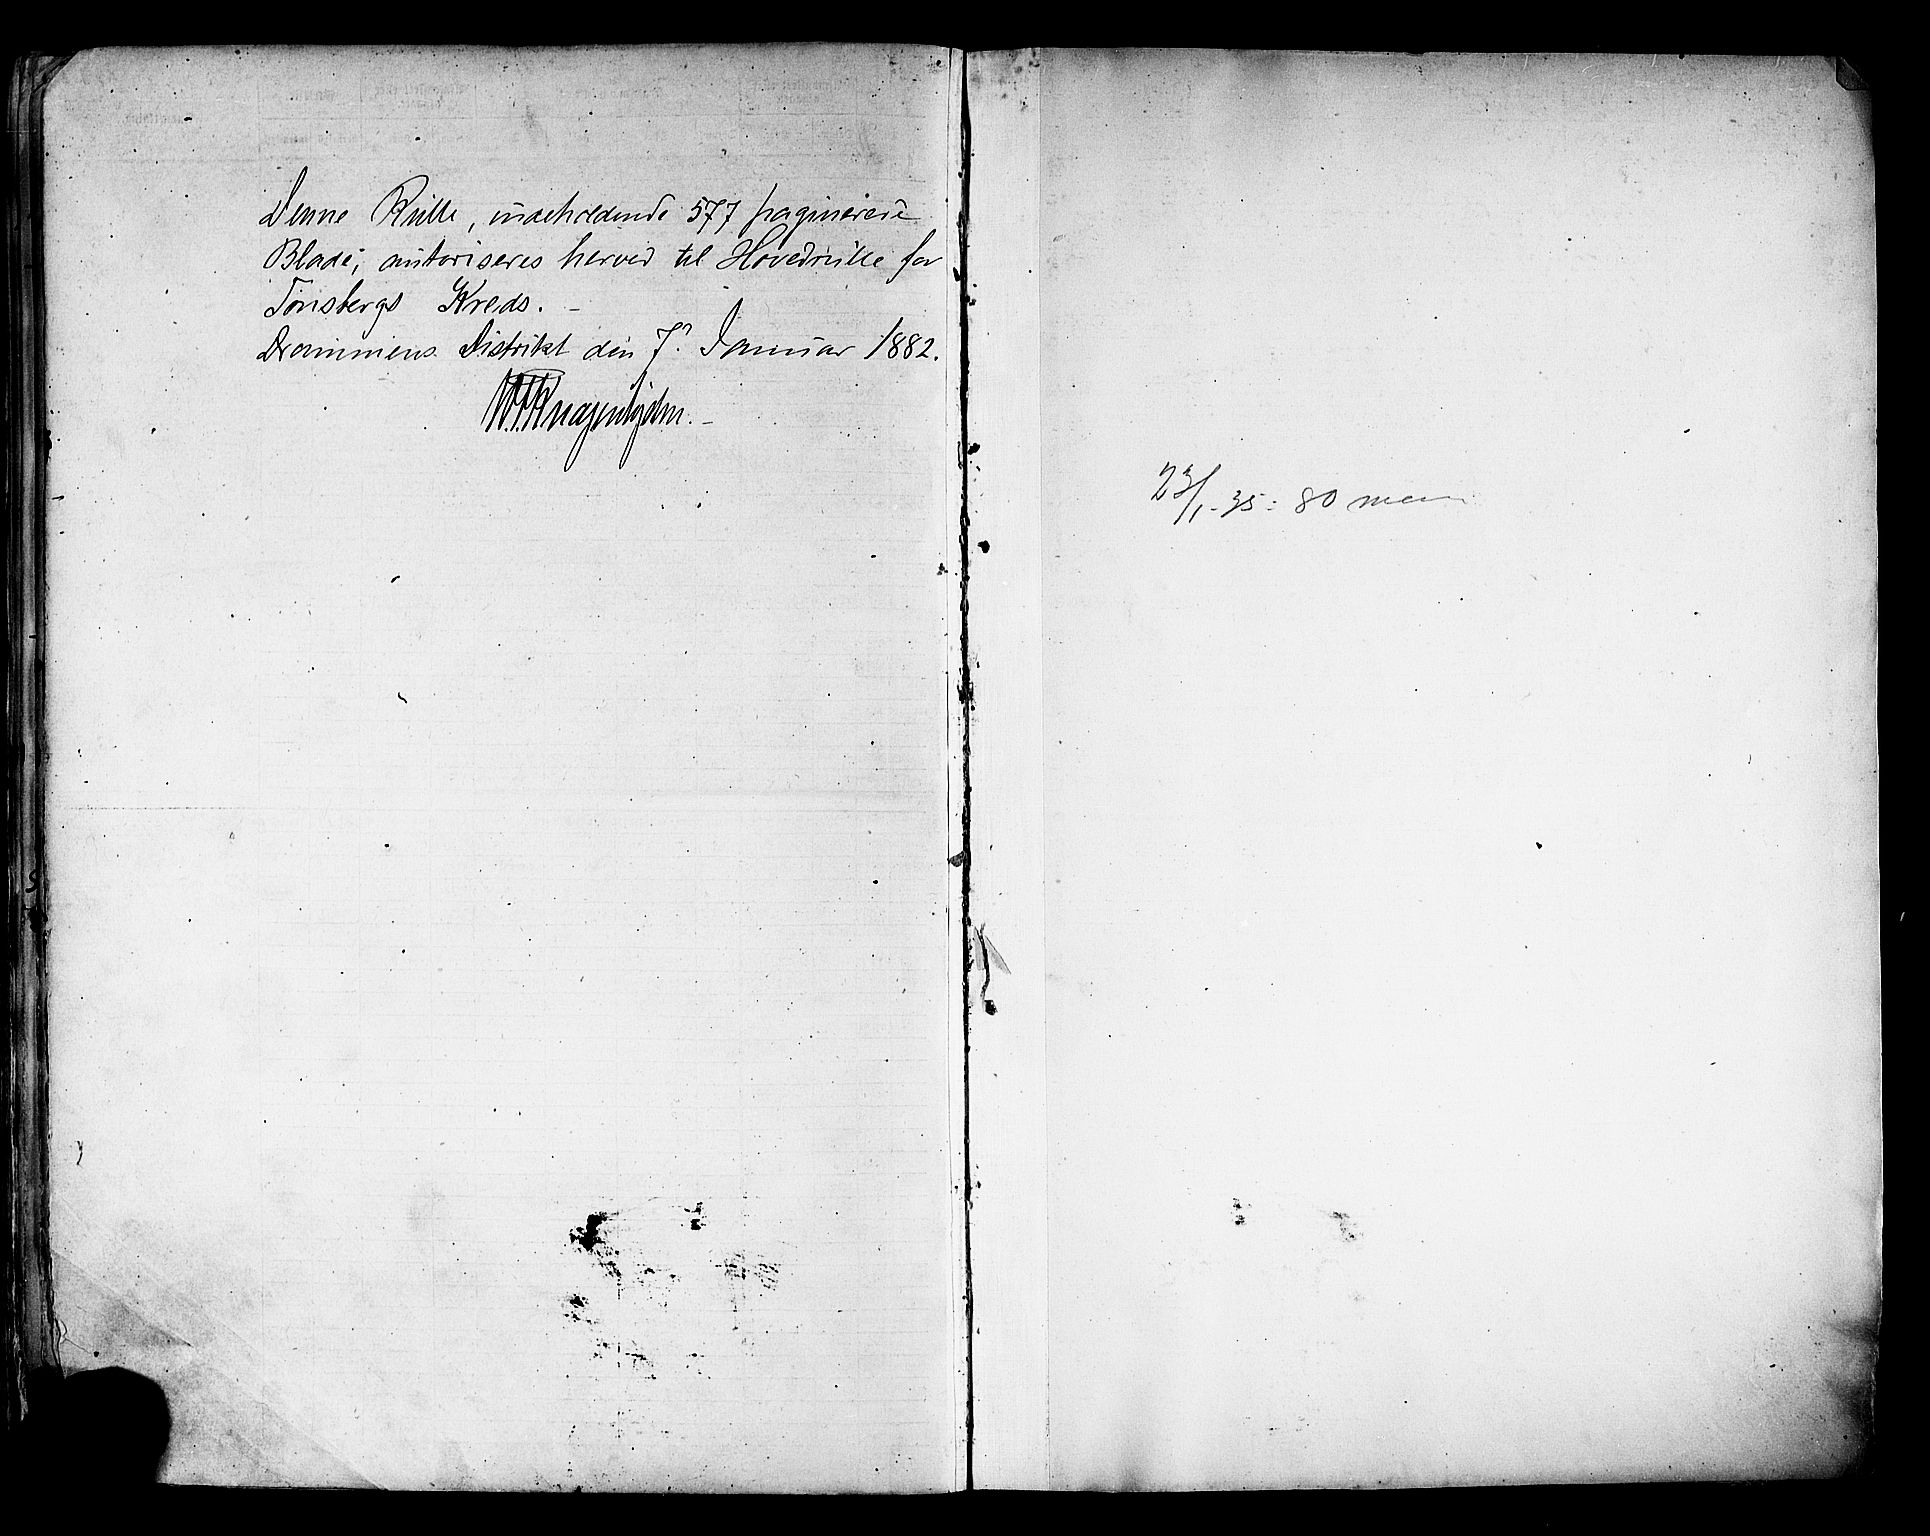 Denne Rulle, indeholdende 577 paginerede
Blade, autoriseres herved til Hovedrulle for
Tønsbergs Kreds. –
Drammens Distrikt den 7' Januar 1882.
23/1-35: 80 mann